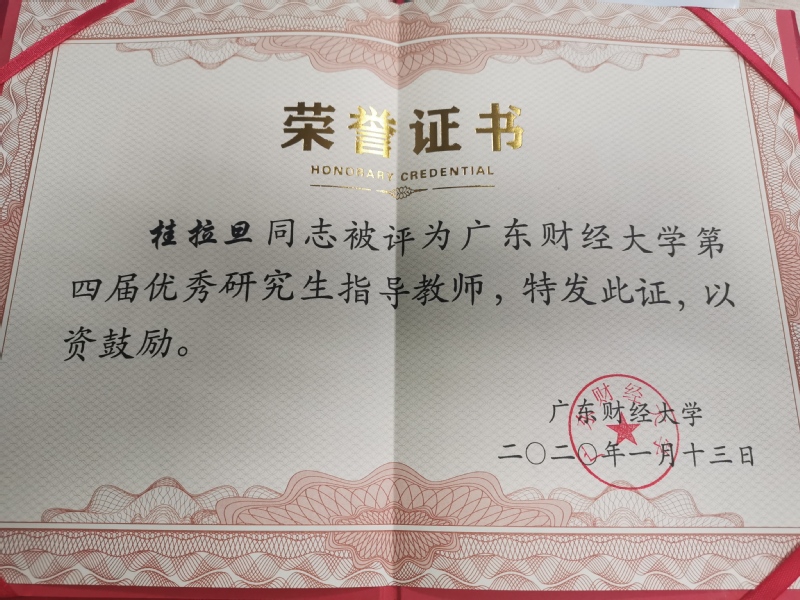 荣誉证书
HONORARY CREDENTIAL
桂拉旦同志被评为广东财经大学第
四届优秀研究生指导教师，特发此证，以
资鼓励。
广东财经大学
二〇二〇年一月十三日